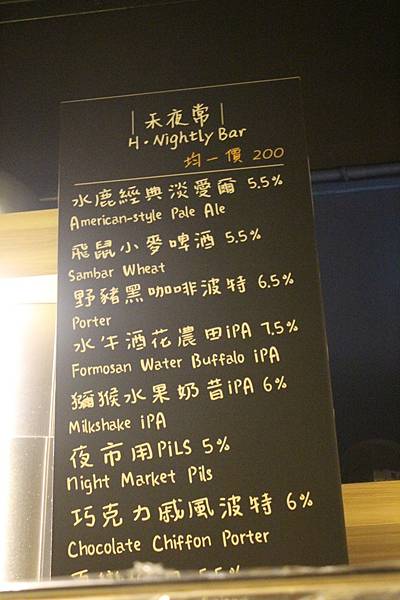 禾夜常
H·Nightly Bar
均一價 200
水鹿經典淡愛爾 5.5%
American-style Pale Ale
飛鼠小麥啤酒 5.5%
Sambar Wheat
野豬黑咖啡波特 6.5%
Porter
水牛酒花農田iPA 7.5%
Formosan Water Buffalo iPA
獼猴水果奶昔iPA 6%
Milkshake iPA
夜市用PiLS 5%
Night Market Pils
巧克力戚風波特 6%
Chocolate Chiffon Porter
5.5%